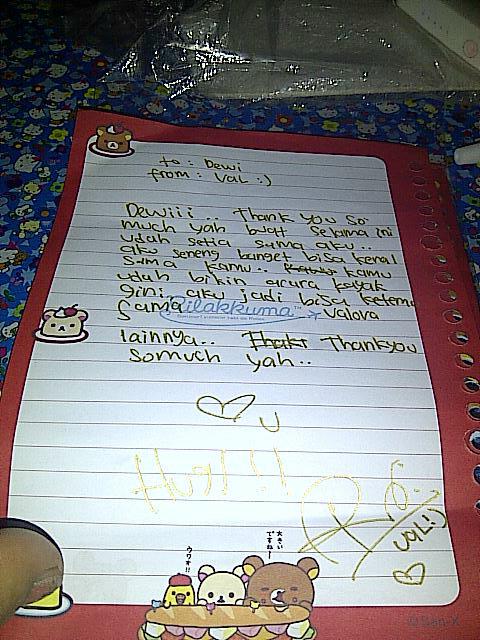 to : Dewi
from : VAL :)
Dewiii .. Thank you so
much yah buat selama ini
udah setia sama aku ..
aku seneng banget bisa kenal
sama kamu .. kamu
udah bikin acara kayak
gini aku jadi bisa ketemu
Sama Valora
Rilakkuma™
S
lainnya .. Thankyou
somuch yah ..
U
Hug!!!
VAL!)
大きい
ですね〜
ウワオ!!
©San-X